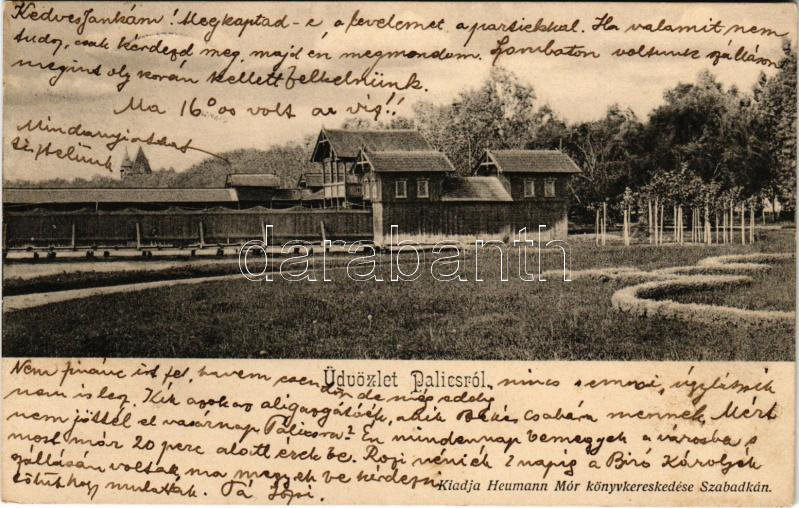 Kedves Jankám! Megkaptad-e a levelemet a partiekkal. Ha valamit nem
tudsz, csak kérdezd meg, majd én megmondom. Szombaton voltunk szálláson
megint oly korán kellett felkelnünk.
Ma 16° volt a víz!!
Mindannyiotokat
tisztelünk
darabanth
Üdvözlet Palicsról.
Nem piráncs írt fel, hanem csendőr de még eddig nincs semmi, úgylátszik
nem is lesz. Kik azok az aligazgatóék, akik Békés Csabára mennek. Mért
nem jöttél el vasárnap Palicsra? Én mindennap bemegyek a városba s
most már 20 perc alatt érek be. Rozi néniék 2 napig a Biró Károlyék
szállásán voltak, ma megyek be kérdezni
tőlük hogy mulattak. Pá
Kiadja Heumann Mór könyvkereskedése Szabadkán.